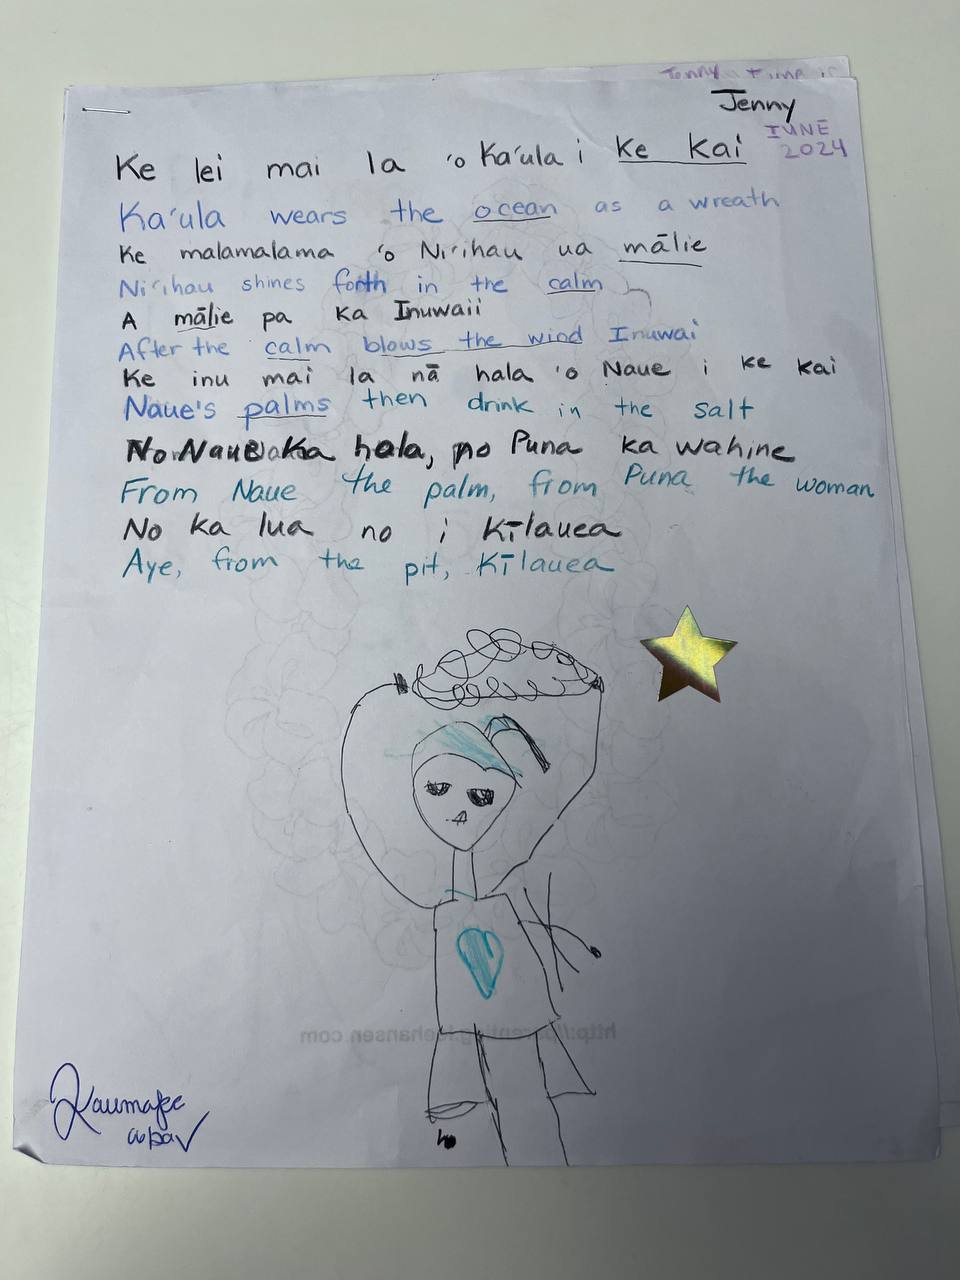 Jenny
Jenny
JUNE
2024
Ke lei mai la 'o Ka'ula i ke kai
Ka'ula wears the ocean as a wreath
Ke malamalama 'o Ni'ihau ua mālie
Ni'ihau shines forth in the calm
A mālie pa ka Inuwaii
After the calm blows the wind Inuwai
Ke inu mai la nā hala 'o Naue i ke kai
Naue's palms then drink in the salt
No Naue ka hala, no Puna ka wahine
From Naue the palm, from Puna the woman
No ka lua no i Kīlauea
Aye, from the pit, Kīlauea